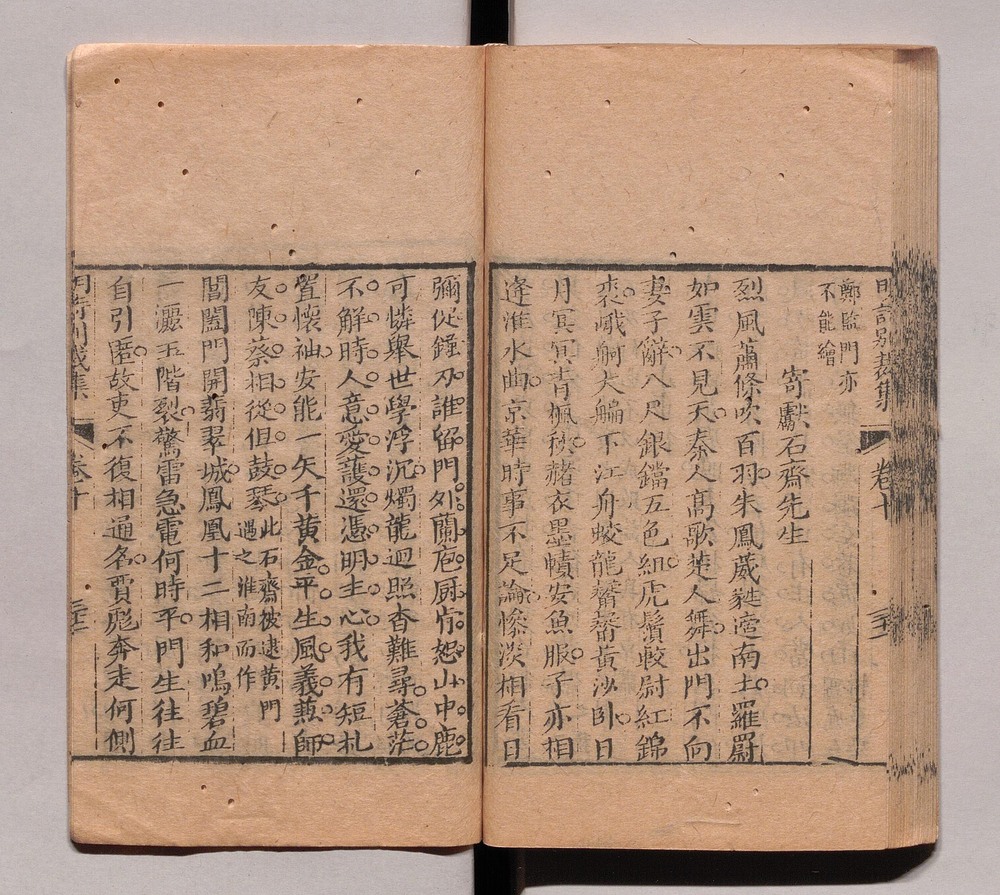 明詩別裁集
卷十
鄭監門亦
不能繪
寄獻石齋先生
烈風蕭條吹百羽朱鳳葳蕤戀南土羅罻
如雲不見天秦人高歌楚人舞出門不向
妻子辭八尺銀鐺五色組虎鬚較尉紅錦
裘峨舸大艑下江舟蛟龍蓄蓄黃沙臥日
月冥冥青楓秋赭衣墨幘安魚服子亦相
逢淮水曲京華時事不足論慘淡相看日
彌促鐘刀誰留門外蘭庖厨常恕山中鹿
可憐舉世學浮沉燭龍迴照杳難尋蒼茫
不解時人意愛護還憑明主心我有短札
置懷袖安能一矢千黃金平生風義兼師
友陳蔡相從但鼓琴此石齋被逮黃門
遇之淮南而作
閶闔門開翡翠城鳳凰十二相和鳴碧血
一灑玉階裂驚雷急電何時平門生往往
自引匿故吏不復相通名賈彪奔走何側
明詩別裁集
卷十